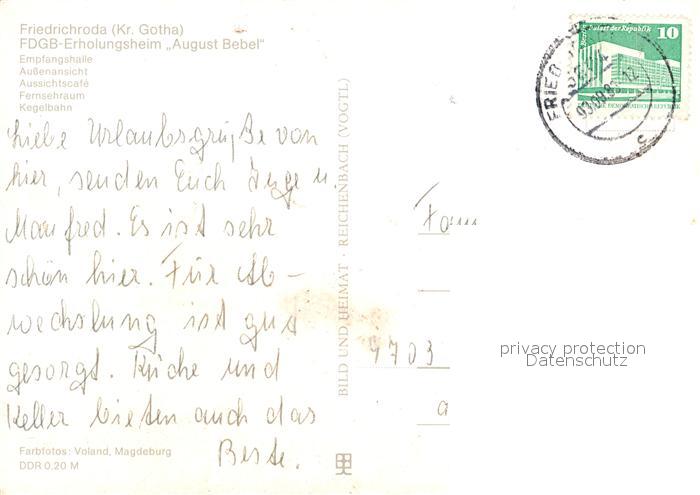 Friedrichroda (Kr. Gotha)
FDGB-Erholungsheim „August Bebel"
Empfangshalle
Außenansicht
Aussichtscafé
Fernsehraum
Kegelbahn
Liebe Urlaubsgrüße von
hier, senden Euch Inge u.
Manfred. Es ist sehr
schön hier. Für Ab-
wechslung ist gut
gesorgt. Küche und
Keller bieten auch das
Beste.
Farbfotos: Voland, Magdeburg
DDR 0,20 M
BILD UND HEIMAT · REICHENBACH (VOGTL)
Palast der Republik
10
FRIED
03.08.8
12
c
Fam
privacy protection
Datenschutz